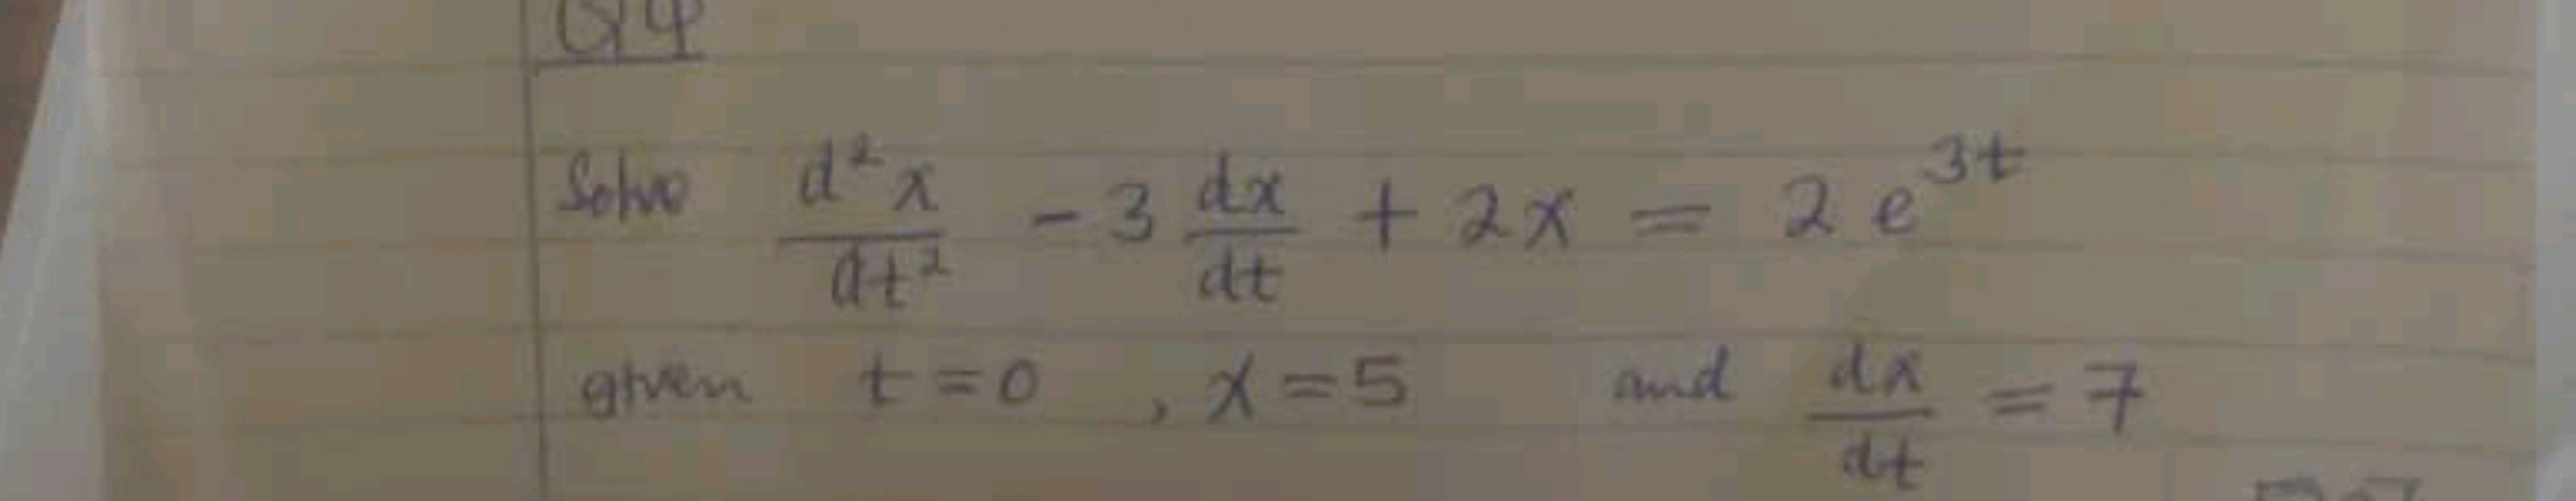 Q4
Solve d²x/dt² - 3 dx/dt + 2x = 2e^{3t}
given t=0 , x=5 and dx/dt = 7